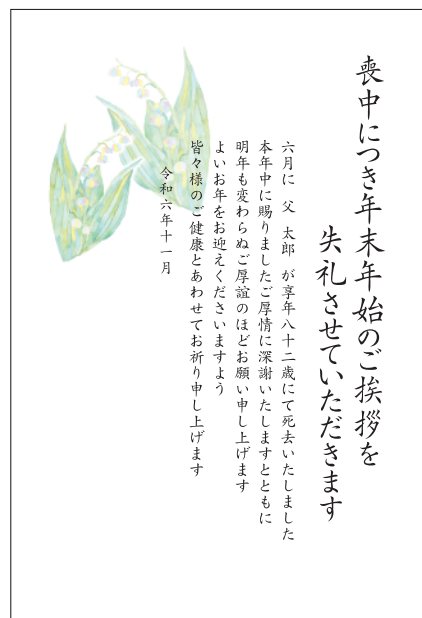 喪中につき年末年始のご挨拶を
失礼させていただきます
六月に　父　太郎　が享年八十二歳にて死去いたしました
本年中に賜りましたご厚情に深謝いたしますとともに
明年も変わらぬご厚誼のほどお願い申し上げます
よいお年をお迎えくださいますよう
皆々様のご健康とあわせてお祈り申し上げます
令和六年十一月